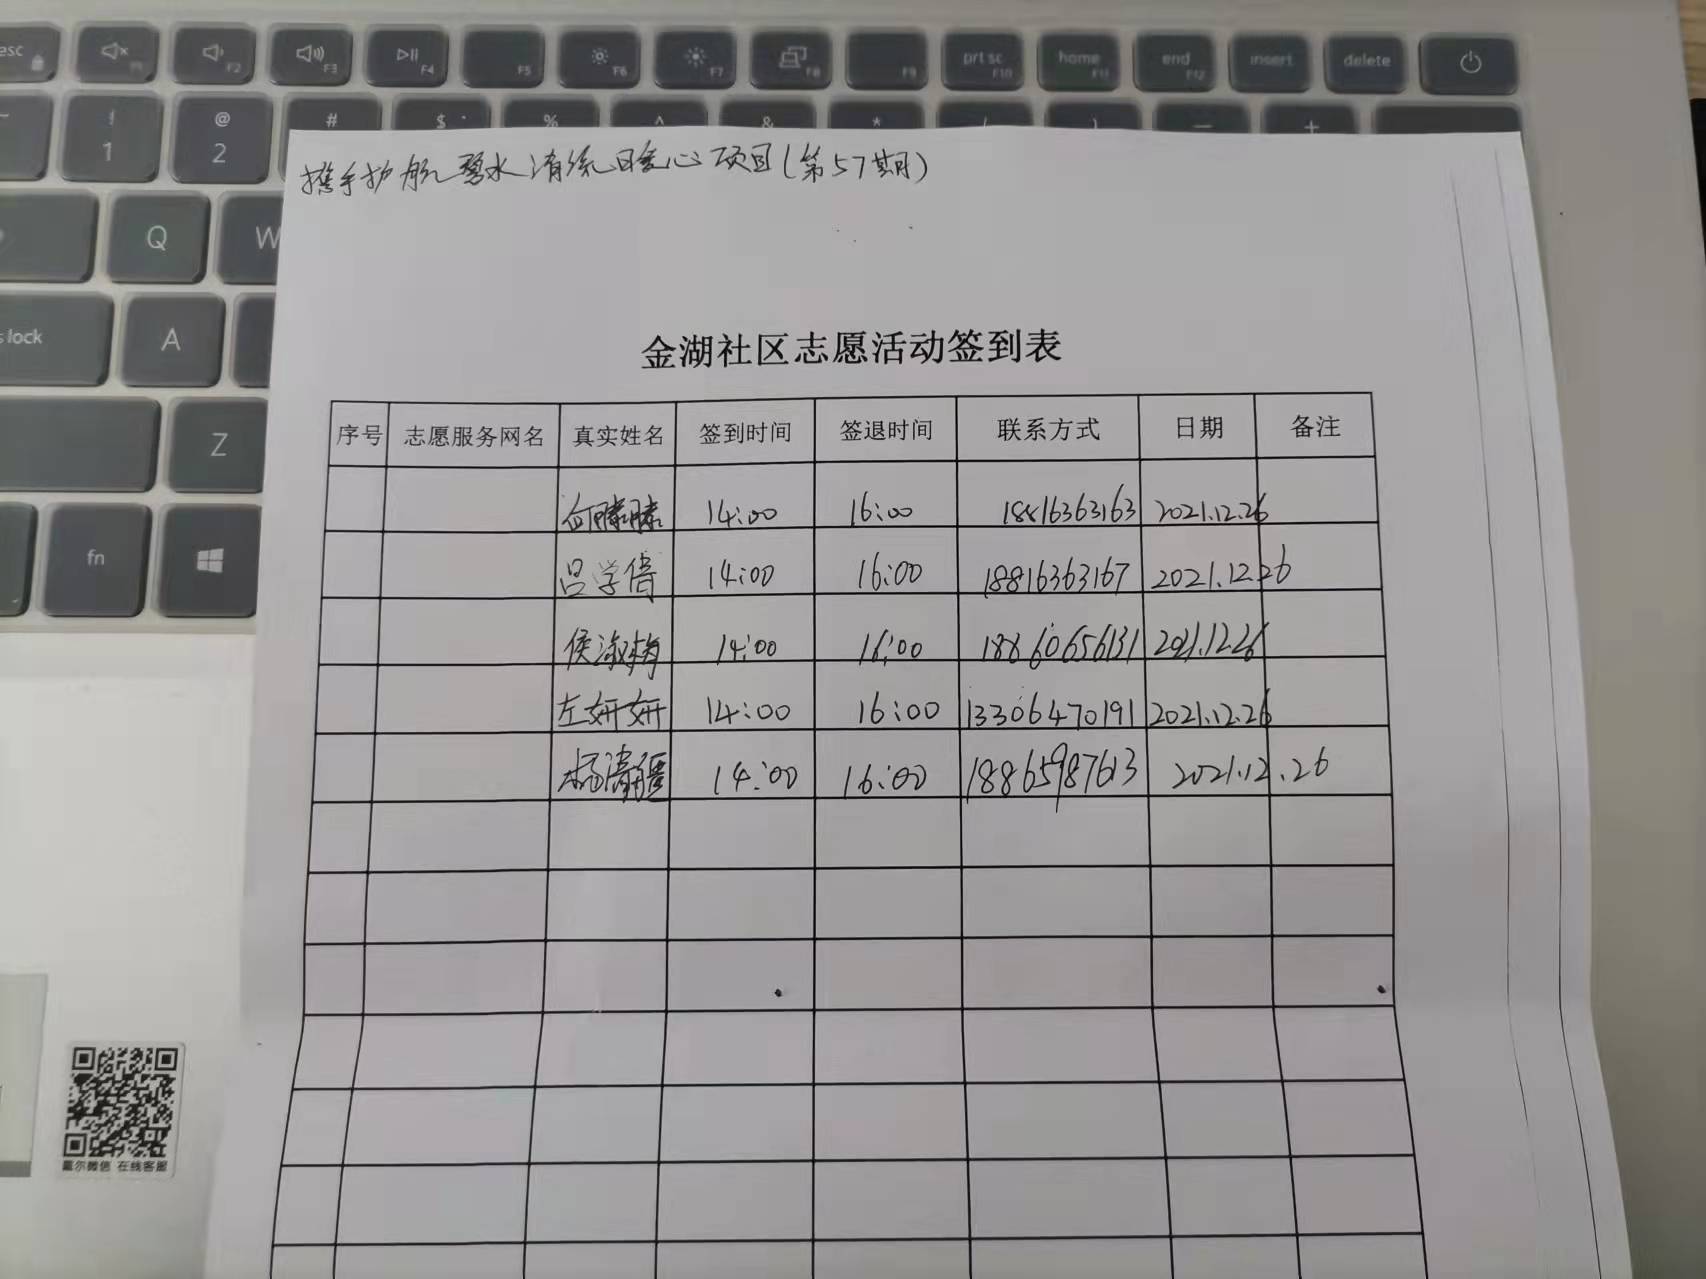 esc
F2
F3
F4
F5
F6
F7
F8
F9
prt sc
F10
home
F11
end
F12
insert
delete
! @ # $ % ^ & *
1 2
Q W
s lock A
Z
fn
携手护航碧水清流日爱心项目(第57期)
金湖社区志愿活动签到表
序号 志愿服务网名 真实姓名 签到时间 签退时间 联系方式 日期 备注
14:00 16:00 18816363163 2021.12.26
吕学倩 14:00 16:00 18816363167 2021.12.26
侯淑梅 14:00 16:00 18860656131 2021.12.26
左妍妍 14:00 16:00 13306470191 2021.12.26
杨清疆 14:00 16:00 18865987613 2021.12.26
戴尔微信 在线客服